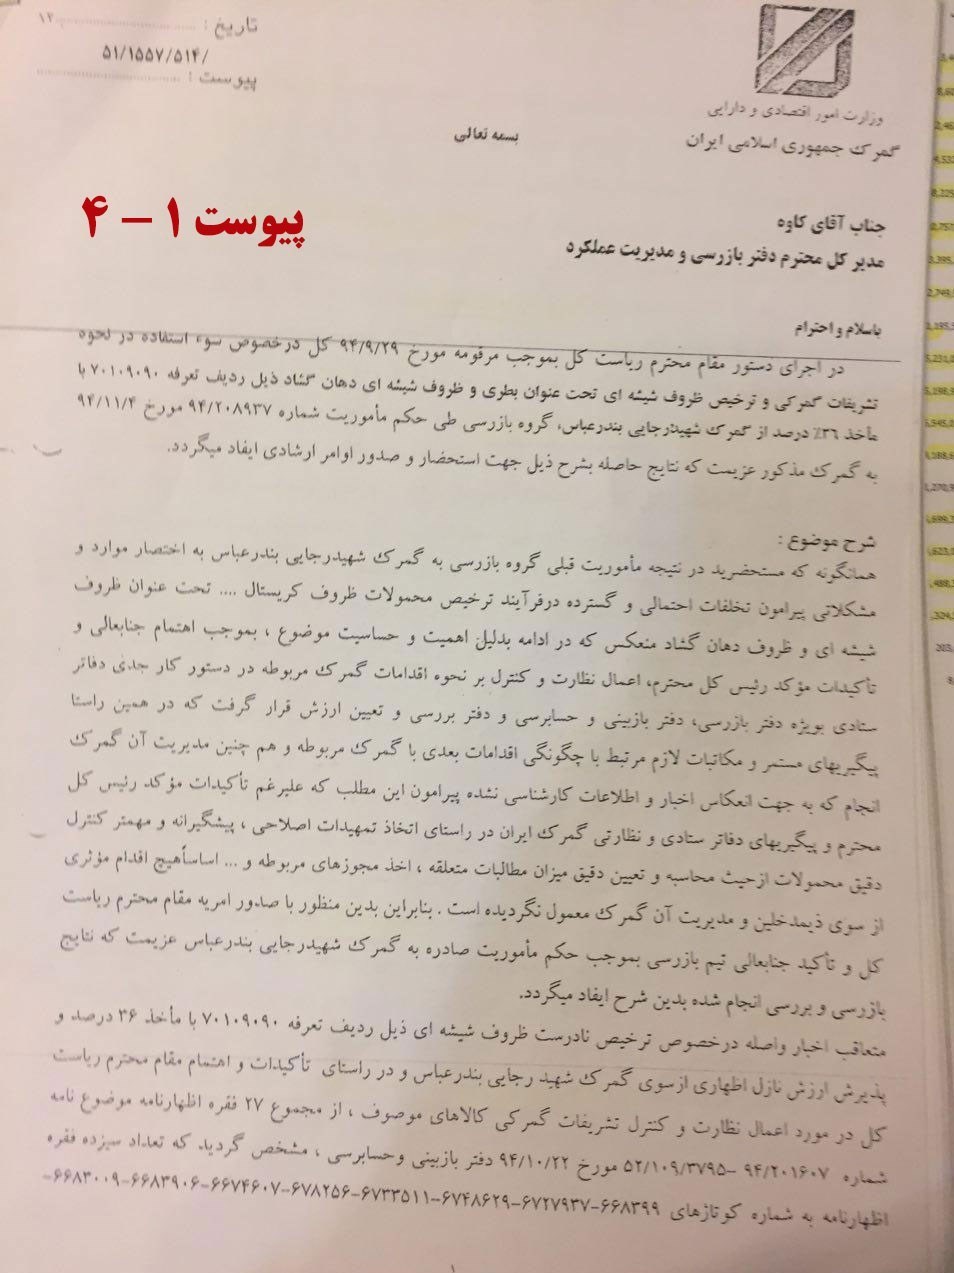 تاریخ : ........................ ۱۲
۵۱/۱۵۵۷/۵۱۴/
پیوست : ........................
وزارت امور اقتصادی و دارایی
گمرک جمهوری اسلامی ایران
بسمه تعالی
پیوست ۱ – ۴
جناب آقای کاوه
مدیر کل محترم دفتر بازرسی و مدیریت عملکرد
باسلام و احترام
در اجرای دستور مقام محترم ریاست کل بموجب مرقومه مورخ ۹۴/۹/۲۹ کل درخصوص سوء استفاده در نحوه
تشریفات گمرکی و ترخیص ظروف شیشه ای تحت عنوان بطری و ظروف شیشه ای دهان گشاد ذیل ردیف تعرفه ۷۰۱۰۹۰۹۰ با
مأخذ ۳۶٪ درصد از گمرک شهیدرجایی بندرعباس، گروه بازرسی طی حکم مأموریت شماره ۹۴/۲۰۸۹۳۷ مورخ ۹۴/۱۱/۴
به گمرک مذکور عزیمت که نتایج حاصله بشرح ذیل جهت استحضار و صدور اوامر ارشادی ایفاد میگردد.
شرح موضوع :
همانگونه که مستحضرید در نتیجه مأموریت قبلی گروه بازرسی به گمرک شهیدرجایی بندرعباس به اختصار موارد و
مشکلاتی پیرامون تخلفات احتمالی و گسترده درفرآیند ترخیص محمولات ظروف کریستال .... تحت عنوان ظروف
شیشه ای و ظروف دهان گشاد منعکس که در ادامه بدلیل اهمیت و حساسیت موضوع ، بموجب اهتمام جنابعالی و
تأکیدات مؤکد رئیس کل محترم، اعمال نظارت و کنترل بر نحوه اقدامات گمرک مربوطه در دستور کار جدی دفاتر
ستادی بویژه دفتر بازرسی، دفتر بازبینی و حسابرسی و دفتر بررسی و تعیین ارزش قرار گرفت که در همین راستا
پیگیریهای مستمر و مکاتبات لازم مرتبط با چگونگی اقدامات بعدی با گمرک مربوطه و هم چنین مدیریت آن گمرک
انجام که به جهت انعکاس اخبار و اطلاعات کارشناسی نشده پیرامون این مطلب که علیرغم تأکیدات مؤکد رئیس کل
محترم و پیگیریهای دفاتر ستادی و نظارتی گمرک ایران در راستای اتخاذ تمهیدات اصلاحی ، پیشگیرانه و مهمتر کنترل
دقیق محمولات ازحیث محاسبه و تعیین دقیق میزان مطالبات متعلقه ، اخذ مجوزهای مربوطه و ... اساساًهیچ اقدام مؤثری
از سوی ذیمدخلین و مدیریت آن گمرک معمول نگردیده است . بنابراین بدین منظور با صدور امریه مقام محترم ریاست
کل و تأکید جنابعالی تیم بازرسی بموجب حکم مأموریت صادره به گمرک شهیدرجایی بندرعباس عزیمت که نتایج
بازرسی و بررسی انجام شده بدین شرح ایفاد میگردد.
متعاقب اخبار واصله درخصوص ترخیص نادرست ظروف شیشه ای ذیل ردیف تعرفه ۷۰۱۰۹۰۹۰ با مأخذ ۳۶ درصد و
پذیرش ارزش نازل اظهاری ازسوی گمرک شهید رجایی بندرعباس و در راستای تأکیدات و اهتمام مقام محترم ریاست
کل در مورد اعمال نظارت و کنترل تشریفات گمرکی کالاهای موصوف ، از مجموع ۲۷ فقره اظهارنامه موضوع نامه
شماره ۹۴/۲۰۱۶۰۷ –۵۲/۱۰۹/۳۷۹۵ مورخ ۹۴/۱۰/۲۲ دفتر بازبینی وحسابرسی ، مشخص گردید که تعداد سیزده فقره
اظهارنامه به شماره کوتاژهای ۶۶۸۳۹۹–۶۷۲۷۹۳۷–۶۷۴۸۶۲۹–۶۷۳۳۵۱۱–۶۷۸۲۵۶–۶۶۷۴۶۰۷–۶۶۸۳۹۰۶–۶۶۸۳۰۰۹–
۱